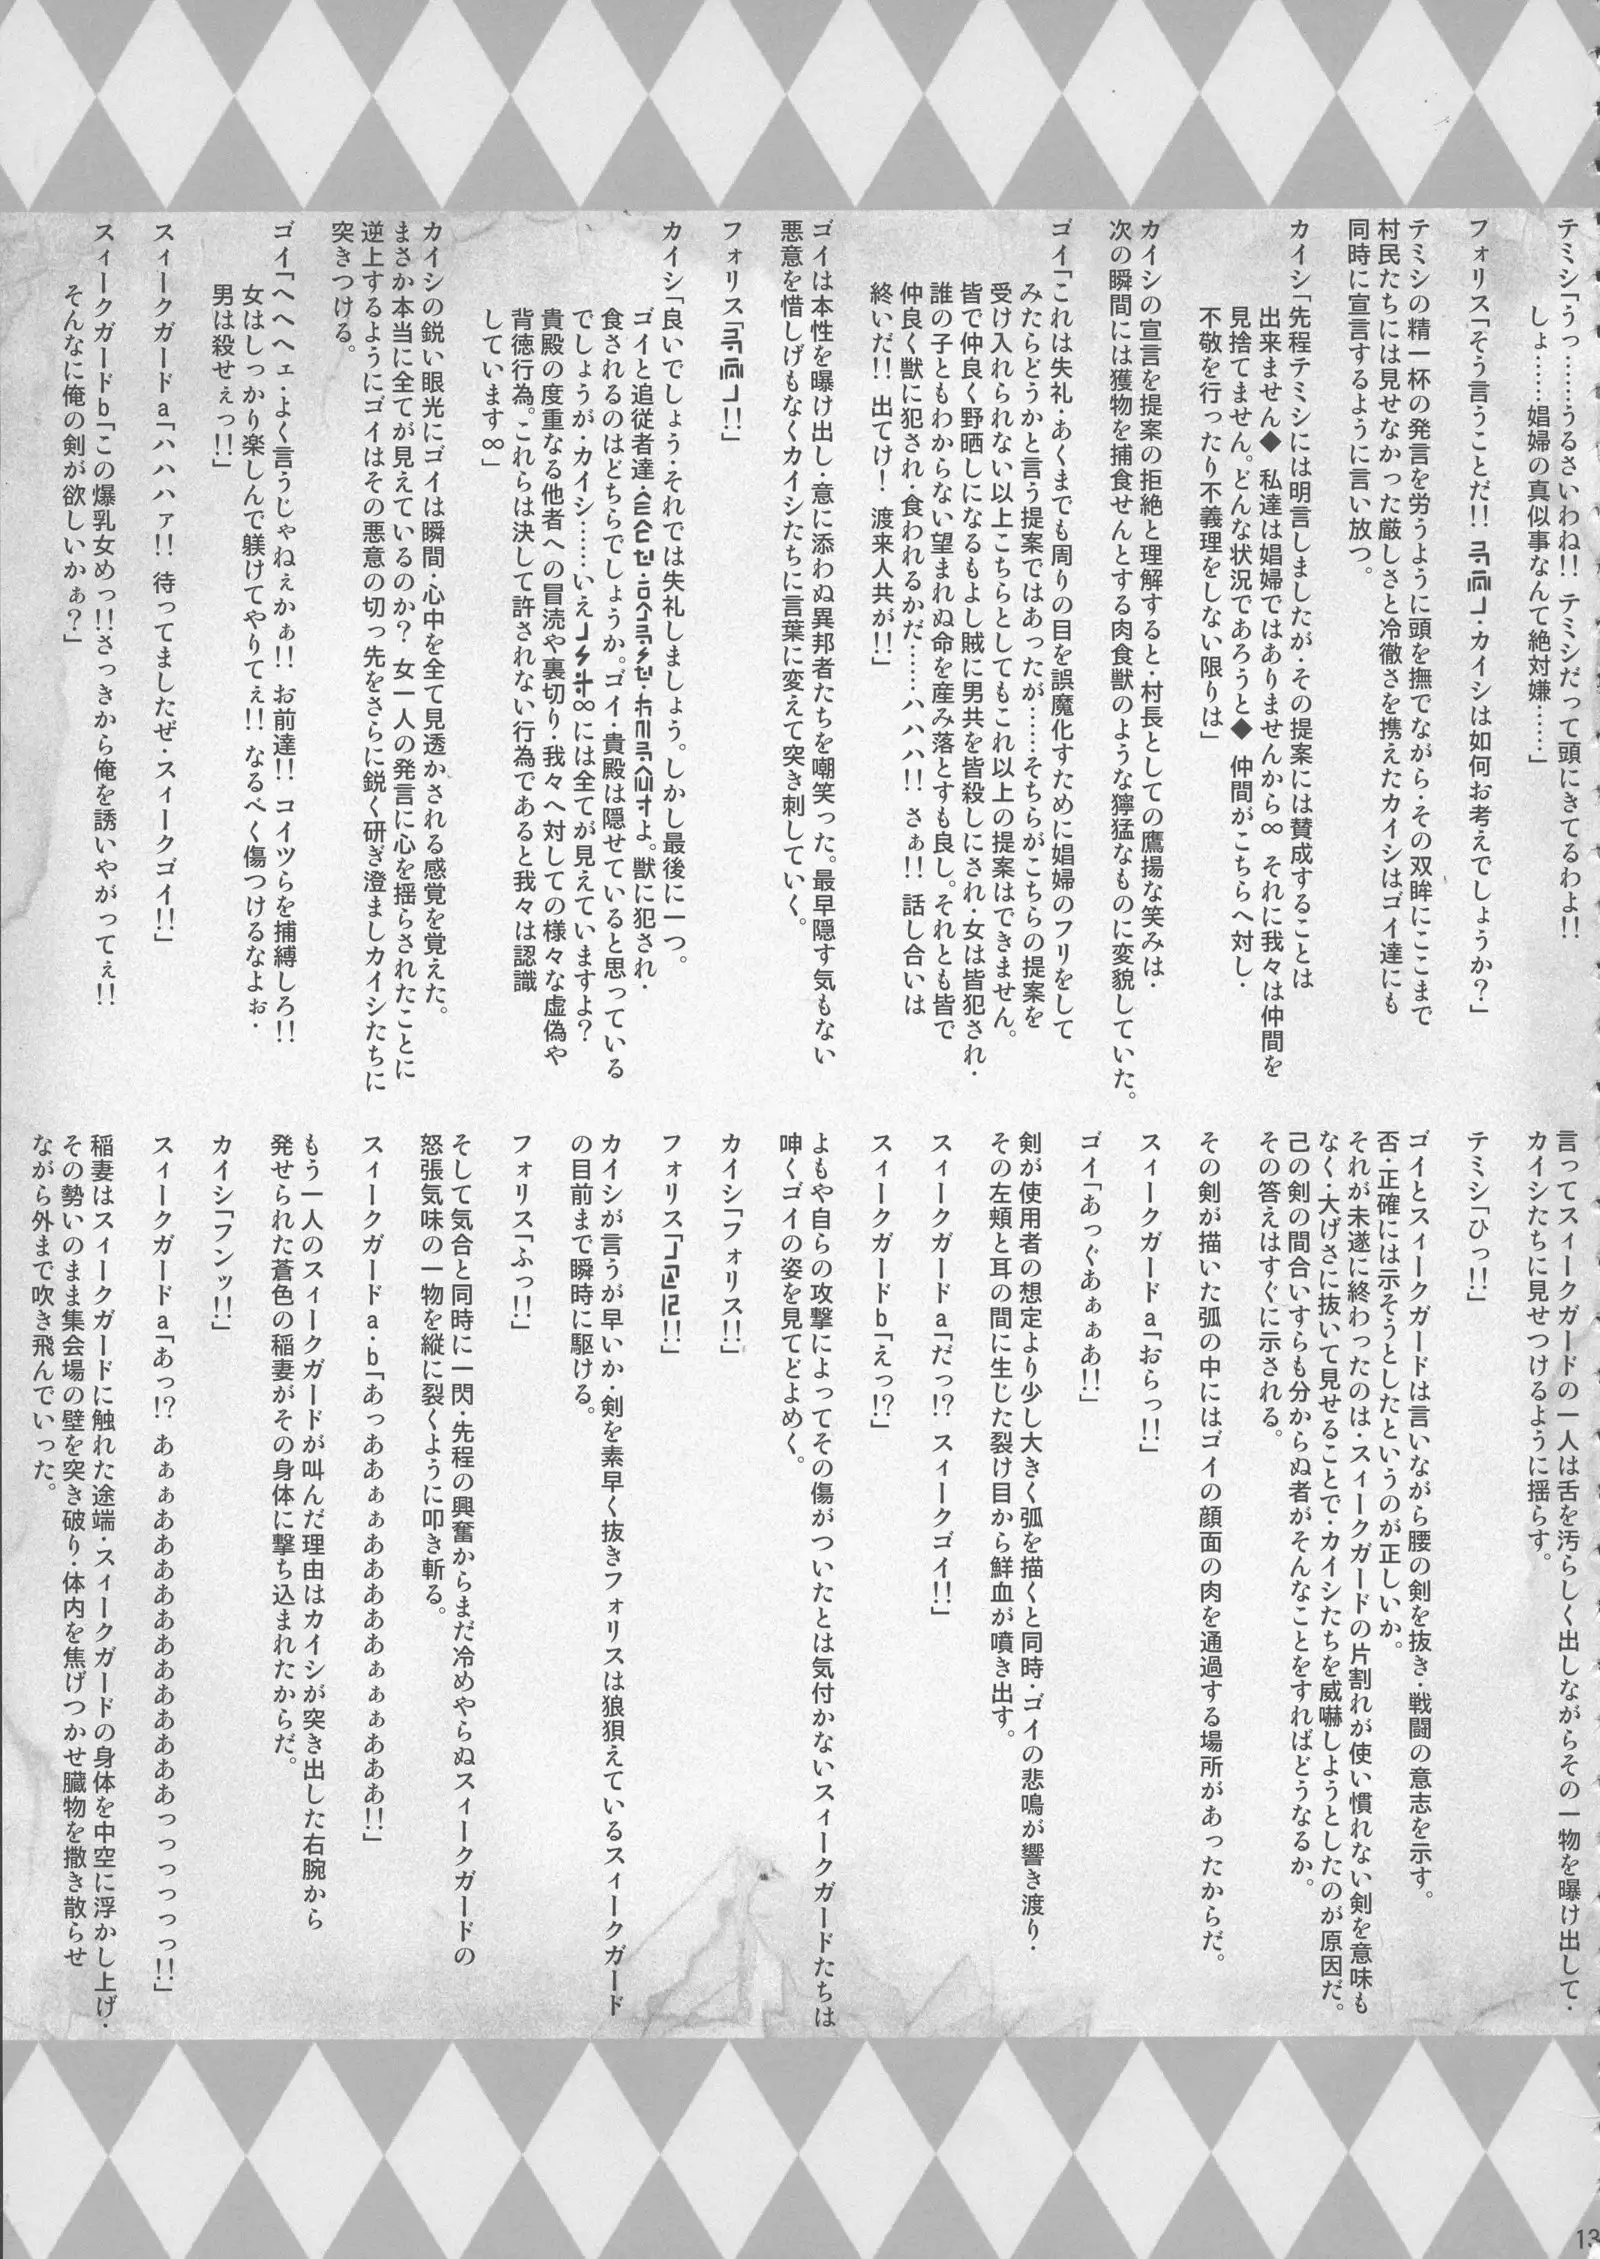 テミシ「うっ……うるさいわね!! テミシだって頭にきてるわよ!!
しょ……娼婦の真似事なんて絶対嫌……」
フォリス「そう言うことだ!! ・カイシは如何お考えでしょうか?」
テミシの精一杯の発言を労うように頭を撫でながら・その双眸にここまで
村民たちには見せなかった厳しさと冷徹さを携えたカイシはゴイ達にも
同時に宣言するように言い放つ。
カイシ「先程テミシには明言しましたが・その提案には賛成することは
出来ません◆ 私達は娼婦ではありませんから∞ それに我々は仲間を
見捨てません。どんな状況であろうと◆ 仲間がこちらへ対し・
不敬を行ったり不義理をしない限りは」
カイシの宣言を提案の拒絶と理解すると・村長としての鷹揚な笑みは・
次の瞬間には獲物を捕食せんとする肉食獣のような獰猛なものに変貌していた。
ゴイ「これは失礼・あくまでも周りの目を誤魔化すために娼婦のフリをして
みたらどうかと言う提案ではあったが……そちらがこちらの提案を
受け入れられない以上こちらとしてもこれ以上の提案はできません。
皆で仲良く野晒しになるもよし賊に男共を皆殺しにされ・女は皆犯され・
誰の子ともわからない望まれぬ命を産み落とすも良し。それとも皆で
仲良く獣に犯され・食われるかだ……ハハハ!! さぁ!! 話し合いは
終いだ!! 出てけ! 渡来人共が!!」
ゴイは本性を曝け出し・意に添わぬ異邦者たちを嘲笑った。最早隠す気もない
悪意を惜しげもなくカイシたちに言葉に変えて突き刺していく。
フォリス「!!」
カイシ「良いでしょう・それでは失礼しましょう。しかし最後に一つ。
ゴイと追従者達・よ。獣に犯され・
食されるのはどちらでしょうか。ゴイ・貴殿は隠せていると思っている
でしょうが・カイシ……いえ∞には全てが見えていますよ?
貴殿の度重なる他者への冒涜や裏切り・我々へ対しての様々な虚偽や
背徳行為。これらは決して許されない行為であると我々は認識
しています∞」
カイシの鋭い眼光にゴイは瞬間・心中を全て見透かされる感覚を覚えた。
まさか本当に全てが見えているのか? 女一人の発言に心を揺らされたことに
逆上するようにゴイはその悪意の切っ先をさらに鋭く研ぎ澄ましカイシたちに
突きつける。
ゴイ「ヘヘヘェ・よく言うじゃねぇかぁ!! お前達!! コイツらを捕縛しろ!!
女はしっかり楽しんで躾けてやりてぇ!! なるべく傷つけるなよぉ・
男は殺せぇっ!!」
スィークガードa「ハハハァ!! 待ってましたぜ・スィークゴイ!!」
スィークガードb「この爆乳女めっ!!さっきから俺を誘いやがってぇ!!
そんなに俺の剣が欲しいかぁ?」
言ってスィークガードの一人は舌を汚らしく出しながらその一物を曝け出して・
カイシたちに見せつけるように揺らす。
テミシ「ひっ!!」
ゴイとスィークガードは言いながら腰の剣を抜き・戦闘の意志を示す。
否・正確には示そうとしたというのが正しいか。
それが未遂に終わったのは・スィークガードの片割れが使い慣れない剣を意味も
なく・大げさに抜いて見せることで・カイシたちを威嚇しようとしたのが原因だ。
己の剣の間合いすらも分からぬ者がそんなことをすればどうなるか。
その答えはすぐに示される。
その剣が描いた弧の中にはゴイの顔面の肉を通過する場所があったからだ。
スィークガードa「おらっ!!」
ゴイ「あっぐあぁぁあ!!」
剣が使用者の想定より少し大きく弧を描くと同時・ゴイの悲鳴が響き渡り・
その左頬と耳の間に生じた裂け目から鮮血が噴き出す。
スィークガードa「だっ!? スィークゴイ!!」
スィークガードb「えっ!?」
よもや自らの攻撃によってその傷がついたとは気付かないスィークガードたちは
呻くゴイの姿を見てどよめく。
カイシ「フォリス!!」
フォリス「!!」
カイシが言うが早いか・剣を素早く抜きフォリスは狼狽えているスィークガード
の目前まで瞬時に駆ける。
フォリス「ふっ!!」
そして気合と同時に一閃・先程の興奮からまだ冷めやらぬスィークガードの
怒張気味の一物を縦に裂くように叩き斬る。
スィークガードa・b「あっああぁぁああああぁぁぁあああ!!」
もう一人のスィークガードが叫んだ理由はカイシが突き出した右腕から
発せられた蒼色の稲妻がその身体に撃ち込まれたからだ。
カイシ「フンッ!!」
スィークガードa「あっ!? あぁぁああああああああああああっっっっっ!!」
稲妻はスィークガードに触れた途端・スィークガードの身体を中空に浮かし上げ・
その勢いのまま集会場の壁を突き破り・体内を焦げつかせ臓物を撒き散らせ
ながら外まで吹き飛んでいった。
13